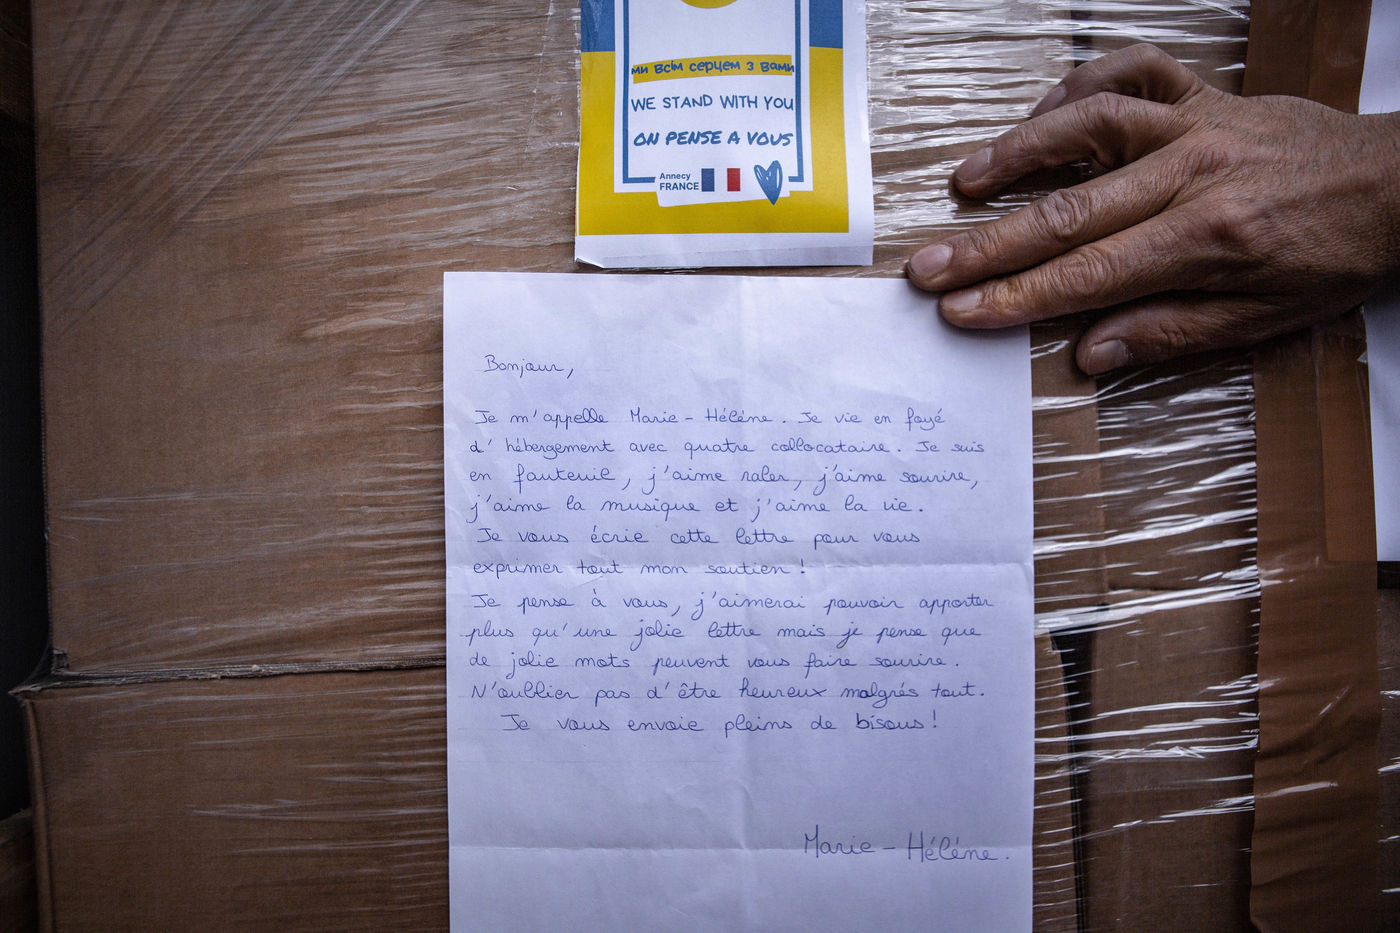 ми всім серцем з вами
WE STAND WITH YOU
ON PENSE A VOUS
Annecy
FRANCE
Bonjour,
Je m'appelle Marie-Hélène. Je vie en foyé
d'hébergement avec quatre collocataire. Je suis
en fauteuil, j'aime raler, j'aime sourire,
j'aime la musique et j'aime la vie.
Je vous écrie cette lettre pour vous
exprimer tout mon soutien !
Je pense à vous, j'aimerai pouvoir apporter
plus qu'une jolie lettre mais je pense que
de jolie mots peuvent vous faire sourire.
N'oublier pas d'être heureux malgrés tout.
Je vous envoie pleins de bisous !
Marie-Hélène.